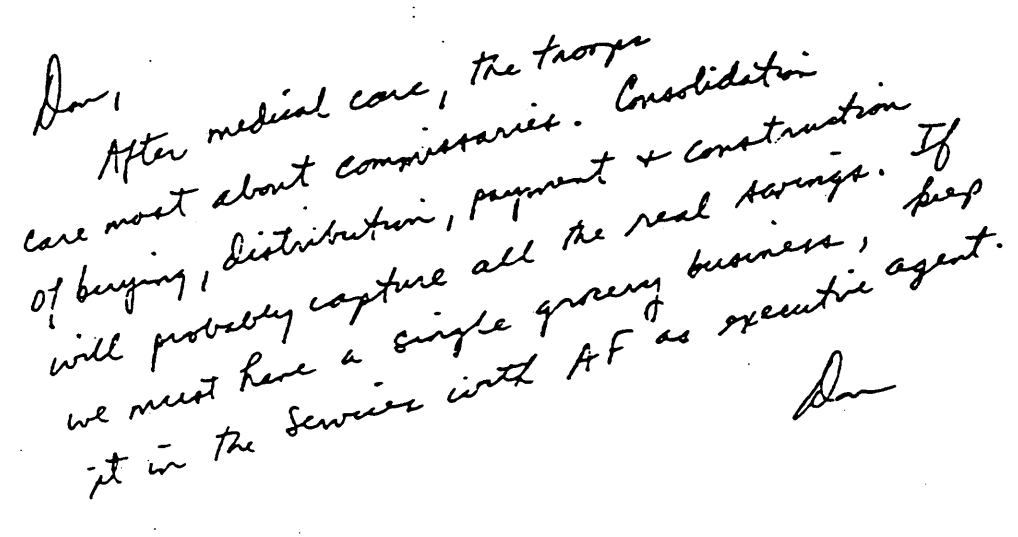 Don,
After medical care, the troops
care most about commissaries. Consolidation
of buying, distribution, payment + construction
will probably capture all the real savings. If
we must have a single grocery business, keep
it in the Services with AF as executive agent.
Don